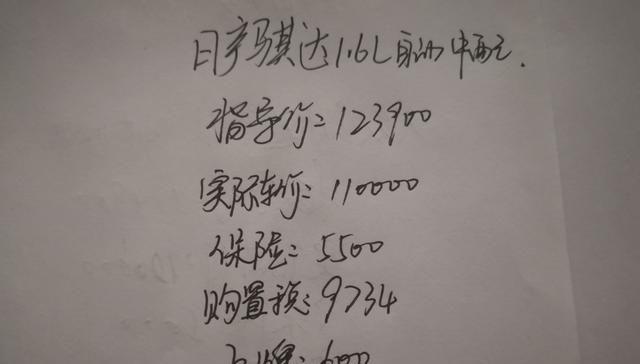 日产骐达1.6L自动中配.
指导价:123900
实际车价:110000
保险:5500
购置税:9734
上牌:600